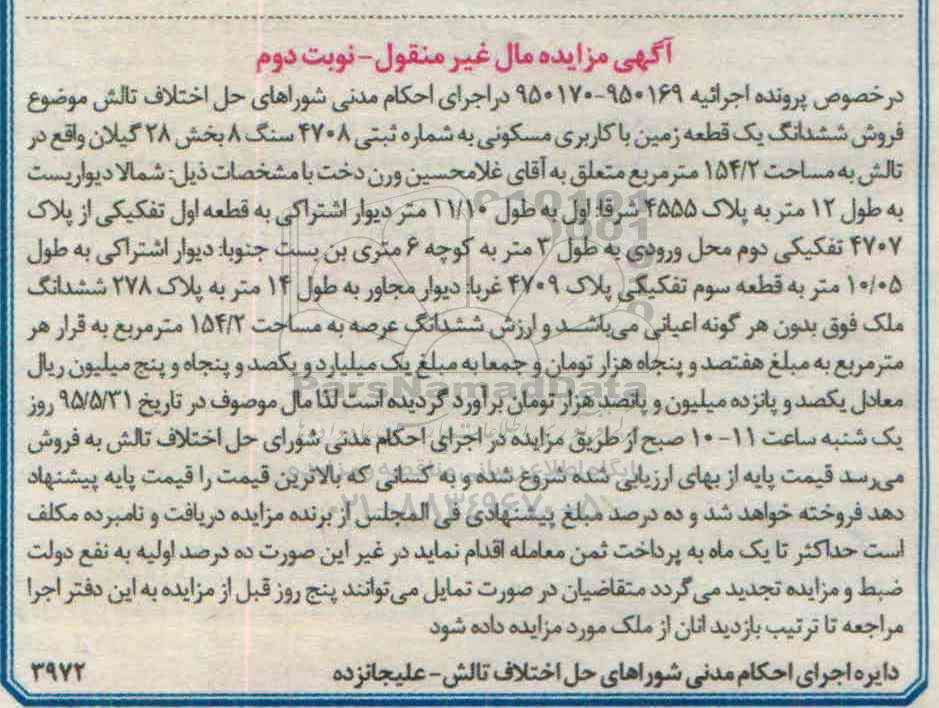 آگهی مزایده مال غیر منقول - نوبت دوم
درخصوص پرونده اجرائیه ۹۵۰۱۶۹-۹۵۰۱۷۰ دراجرای احکام مدنی شوراهای حل اختلاف تالش موضوع
فروش ششدانگ یک قطعه زمین با کاربری مسکونی به شماره ثبتی ۴۷۰۸ سنگ ۸ بخش ۲۸ گیلان واقع در
تالش به مساحت ۱۵۴/۲ مترمربع متعلق به آقای غلامحسین ورن دخت با مشخصات ذیل: شمالا دیواریست
به طول ۱۲ متر به پلاک ۴۵۵۵ شرقا: اول به طول ۱۱/۱۰ متر دیوار اشتراکی به قطعه اول تفکیکی از پلاک
۴۷۰۷ تفکیکی دوم محل ورودی به طول ۳ متر به کوچه ۶ متری بن بست جنوبا: دیوار اشتراکی به طول
۱۰/۰۵ متر به قطعه سوم تفکیکی پلاک ۴۷۰۹ غربا: دیوار مجاور به طول ۱۴ متر به پلاک ۲۷۸ ششدانگ
ملک فوق بدون هر گونه اعیانی می‌باشد و ارزش ششدانگ عرصه به مساحت ۱۵۴/۲ مترمربع به قرار هر
مترمربع به مبلغ هفتصد و پنجاه هزار تومان و جمعا به مبلغ یک میلیارد و یکصد و پنجاه و پنج میلیون ریال
معادل یکصد و پانزده میلیون و پانصد هزار تومان برآورد گردیده است لذا مال موصوف در تاریخ ۹۵/۵/۳۱ روز
یک شنبه ساعت ۱۱-۱۰ صبح از طریق مزایده در اجرای احکام مدنی شورای حل اختلاف تالش به فروش
می‌رسد قیمت پایه از بهای ارزیابی شده شروع شده و به کسانی که بالاترین قیمت را قیمت پایه پیشنهاد
دهد فروخته خواهد شد و ده درصد مبلغ پیشنهادی فی المجلس از برنده مزایده دریافت و نامبرده مکلف
است حداکثر تا یک ماه به پرداخت ثمن معامله اقدام نماید در غیر این صورت ده درصد اولیه به نفع دولت
ضبط و مزایده تجدید می گردد متقاضیان در صورت تمایل می‌توانند پنج روز قبل از مزایده به این دفتر اجرا
مراجعه تا ترتیب بازدید انان از ملک مورد مزایده داده شود
دایره اجرای احکام مدنی شوراهای حل اختلاف تالش - علیجانزده
۳۹۷۲
ParsNamadData